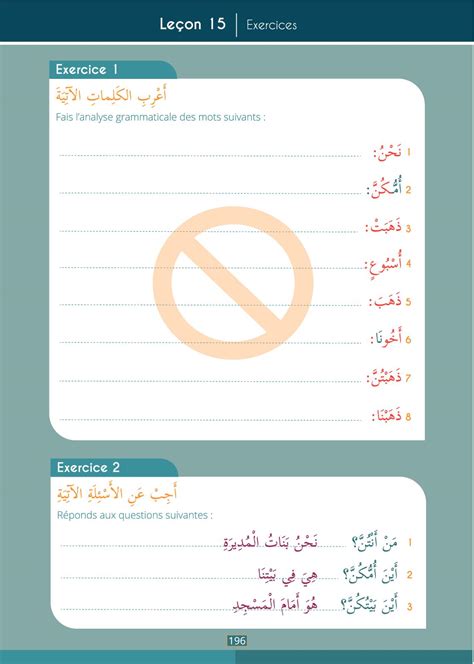 Leçon 15 | Exercices
Exercice 1
أَعْرِبِ الكَلِماتِ الآتِيَةَ
Fais l'analyse grammaticale des mots suivants :
1 نَحْنُ:
2 أُمُّكُنَّ:
3 ذَهَبَتْ:
4 أُسْبُوعٍ:
5 ذَهَبَ:
6 أَخُونَا:
7 ذَهَبْتُنَّ:
8 ذَهَبْنَا:
Exercice 2
أَجِبْ عَنِ الأَسْئِلَةِ الآتِيَةِ
Réponds aux questions suivantes :
1 مَنْ أَنْتُنَّ؟ نَحْنُ بَنَاتُ الْمُدِيرَةِ
2 أَيْنَ أُمُّكُنَّ؟ هِيَ فِي بَيْتِنَا
3 أَيْنَ بَيْتُكُنَّ؟ هُوَ أَمَامَ الْمَسْجِدِ
196